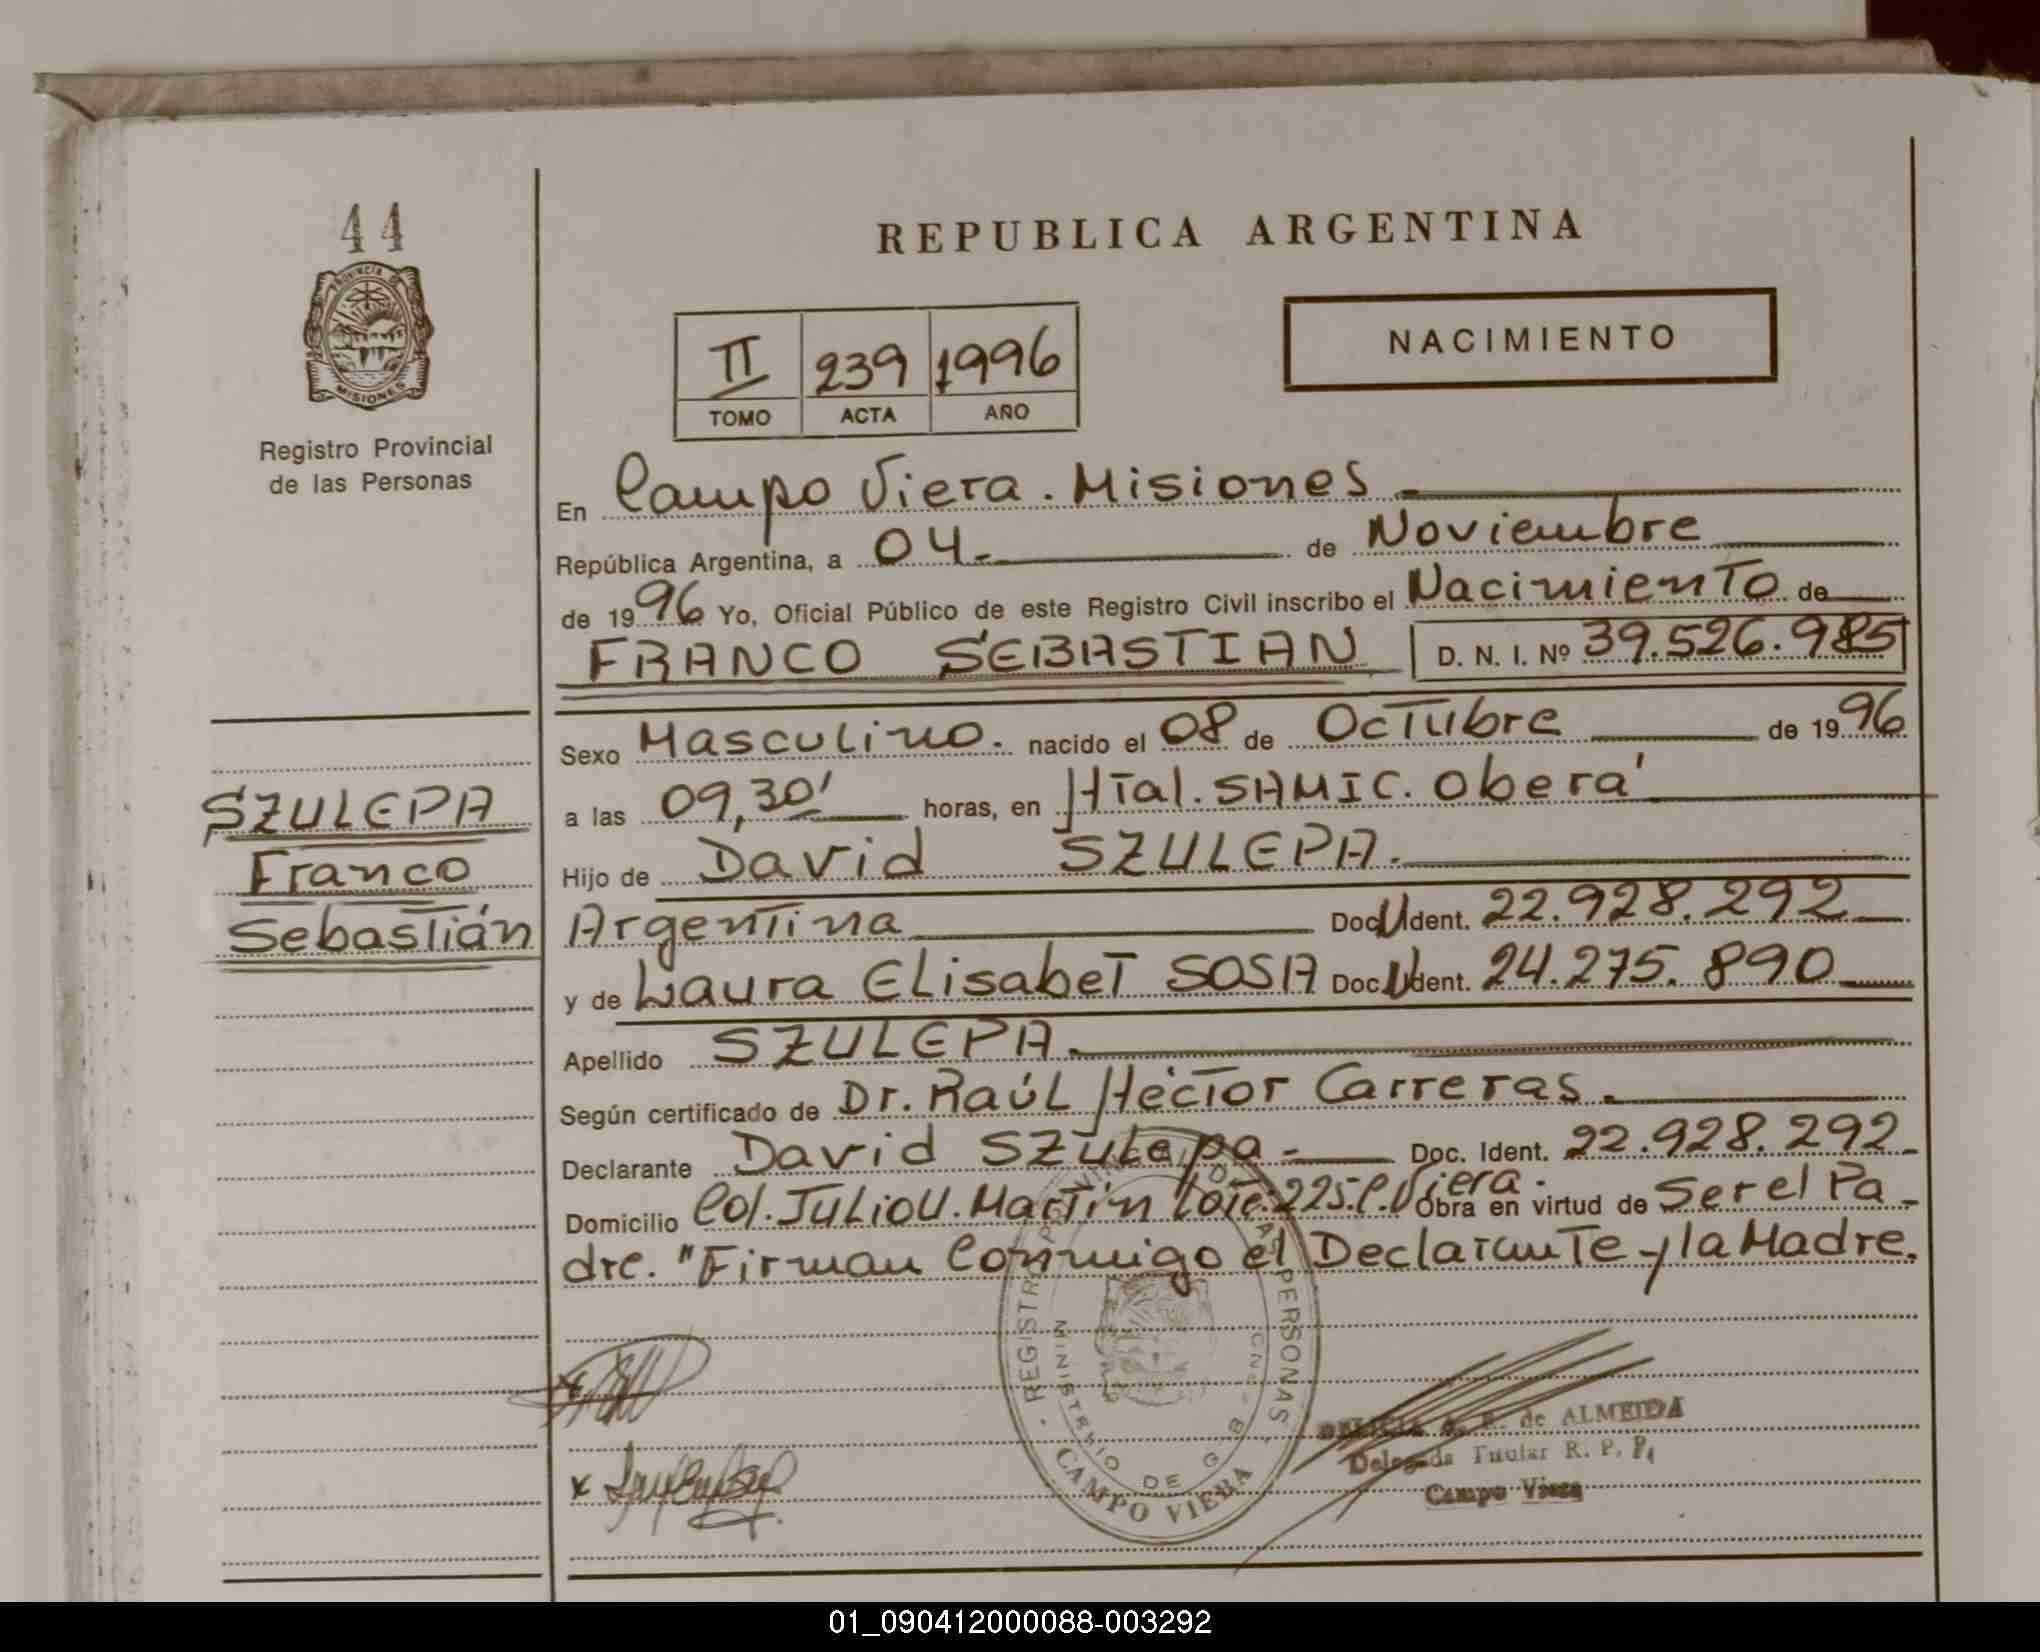 44
PROVINCIA DE
MISIONES
Registro Provincial
de las Personas
REPUBLICA ARGENTINA
II 239 1996
TOMO ACTA AÑO
NACIMIENTO
En Campo Viera. Misiones.
República Argentina, a 04.- de Noviembre
de 1996 Yo, Oficial Público de este Registro Civil inscribo el Nacimiento de
FRANCO SEBASTIAN D. N. I. Nº 39.526.985
Sexo Masculino. nacido el 08 de Octubre de 1996
a las 09,30' horas, en Htal. SAMIC. Oberá
Hijo de David SZULEPA.
Argentina Doc. Ident. 22.928.292
y de Laura Elisabet SOSA Doc. Ident. 24.275.890
Apellido SZULEPA.
Según certificado de Dr. Raúl Héctor Carreras.
Declarante David Szulepa - Doc. Ident. 22.928.292-
Domicilio Col. Julio U. Martin Lote: 225. C. Viera. Obra en virtud de Ser el Pa-
dre. "Firman Conmigo el Declarante y la Madre.
SZULEPA
Franco
Sebastián
REGISTR PERSONAS
MINISTERIO DE G
CAMPO VIERA
de ALMEIDA
Delegada Titular R. P. P.
Campo Viera
01_090412000088-003292